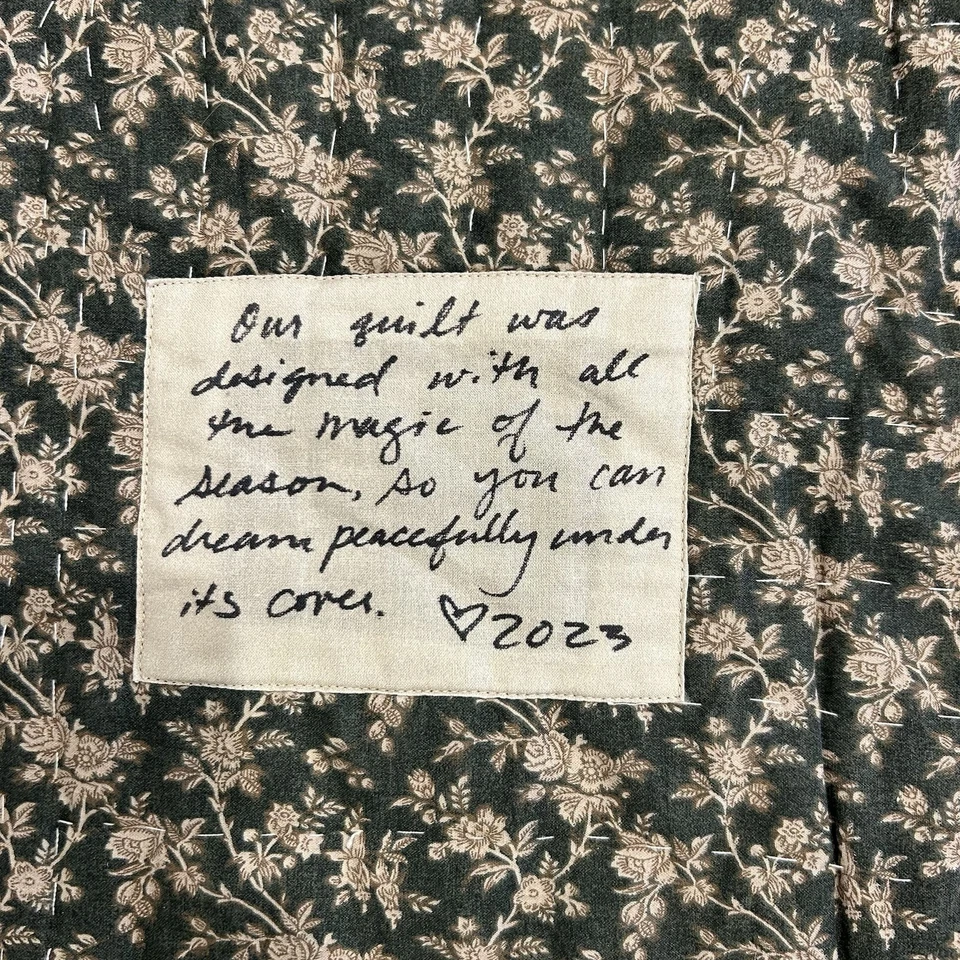 Our quilt was
designed with all
the magic of the
season, so you can
dream peacefully under
its cover.
♡2023